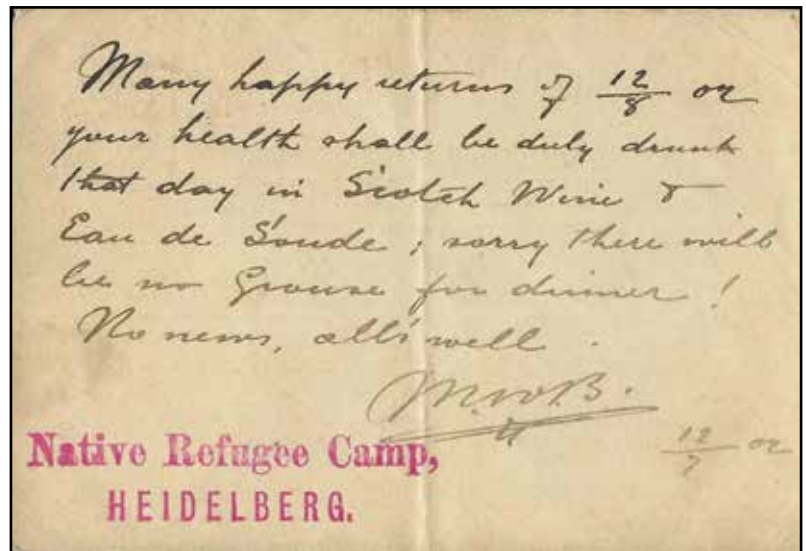 Many happy returns of 12/8 02
your health shall be duly drunk
that day in Scotch Wine &
Eau de Soude; sorry there will
be no Grouse for dinner!
No news, all's well.
M.W.B.
12/7 02
Native Refugee Camp,
HEIDELBERG.